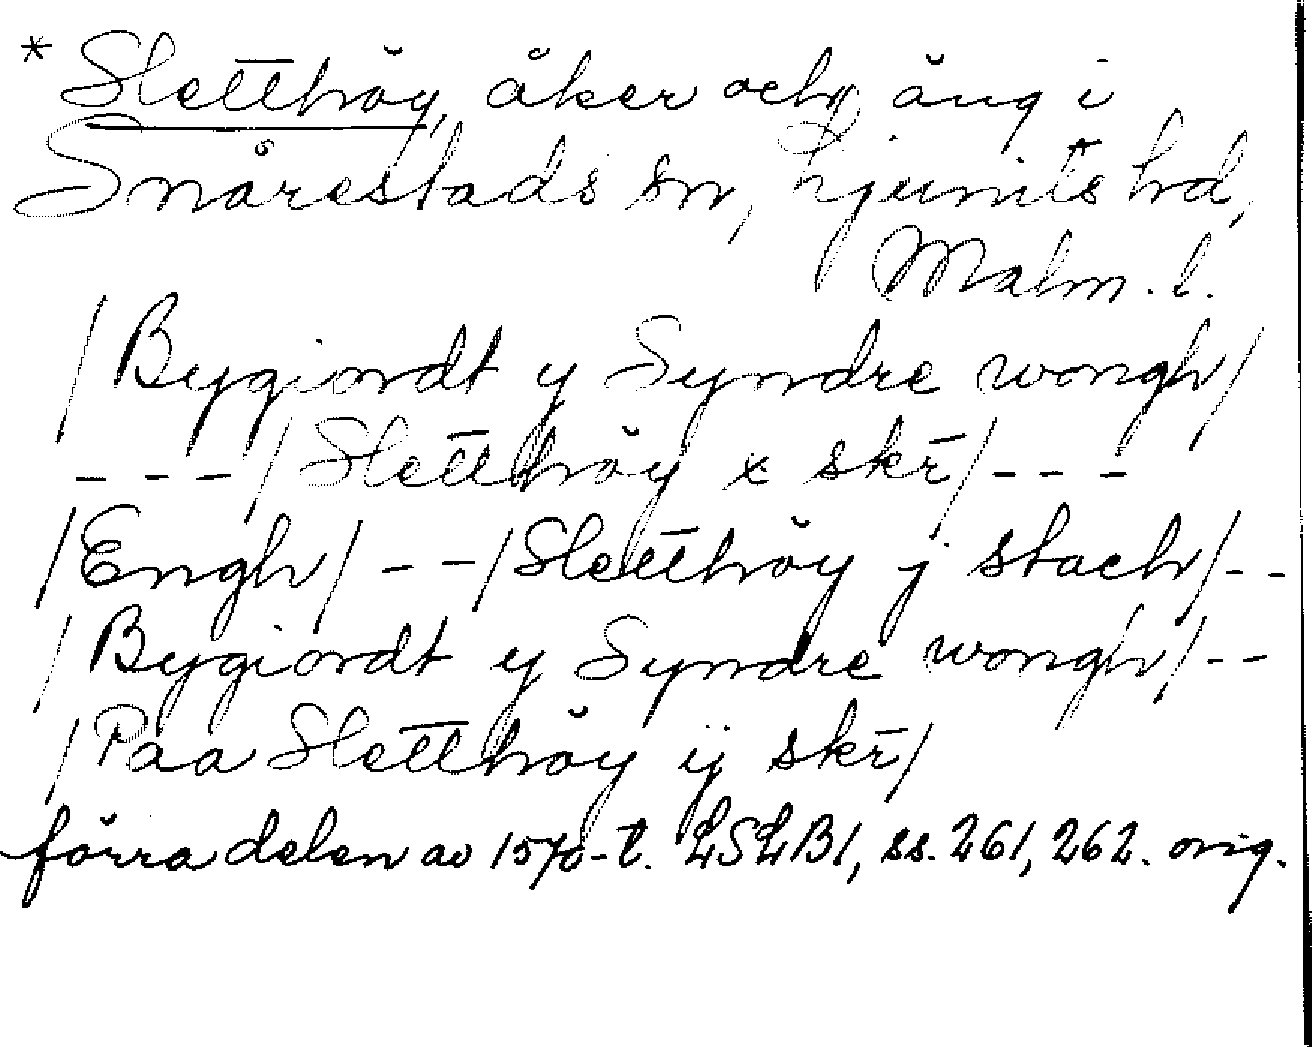 * Sletthöy, åker och äng i
Snårestads sn, Ljunits hd,
Malm. l.
/Bygiordt y Syndre wongh/
- - -/Sletthöy x skr̄/- - -
/Engh/ - -/Sletthöy j stach/- -
/Bygiordt y Syndre wongh/- -
/Paa Sletthöy ij skr̄/
förra delen av 1570-t. LSLB1, ss. 261, 262. orig.